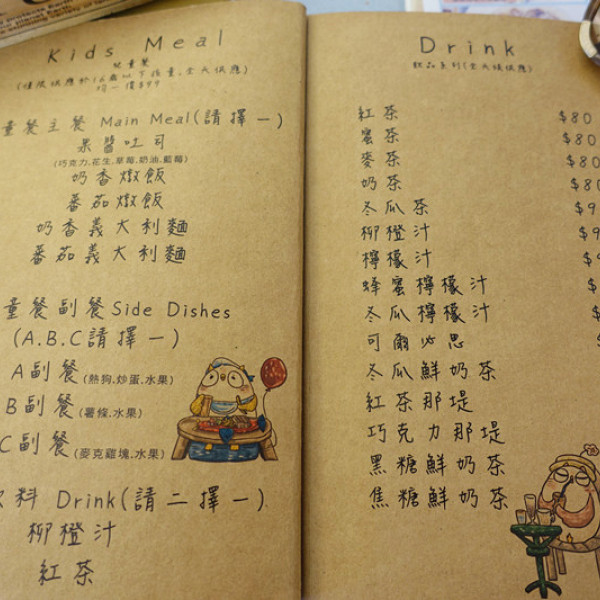 Kids Meal
兒童餐
(僅限供應於12歲以下孩童,全天供應)
均一價$99
童餐主餐 Main Meal(請擇一)
果醬吐司
(巧克力.花生.草莓.奶油.藍莓)
奶香燉飯
番茄燉飯
奶香義大利麵
番茄義大利麵
童餐副餐Side Dishes
(A.B.C請擇一)
A副餐(熱狗.炒蛋.水果)
B副餐(薯條.水果)
C副餐(麥克雞塊.水果)
料 Drink(請二擇一)
柳橙汁
紅茶
Drink
飲品系列(全天候供應)
紅茶 $80
蜜茶 $80
麥茶 $80
奶茶 $80
冬瓜茶 $9
柳橙汁 $9
檸檬汁 $
蜂蜜檸檬汁 $
冬瓜檸檬汁 $
可爾必思
冬瓜鮮奶茶
紅茶那堤
巧克力那堤
黑糖鮮奶茶
焦糖鮮奶茶